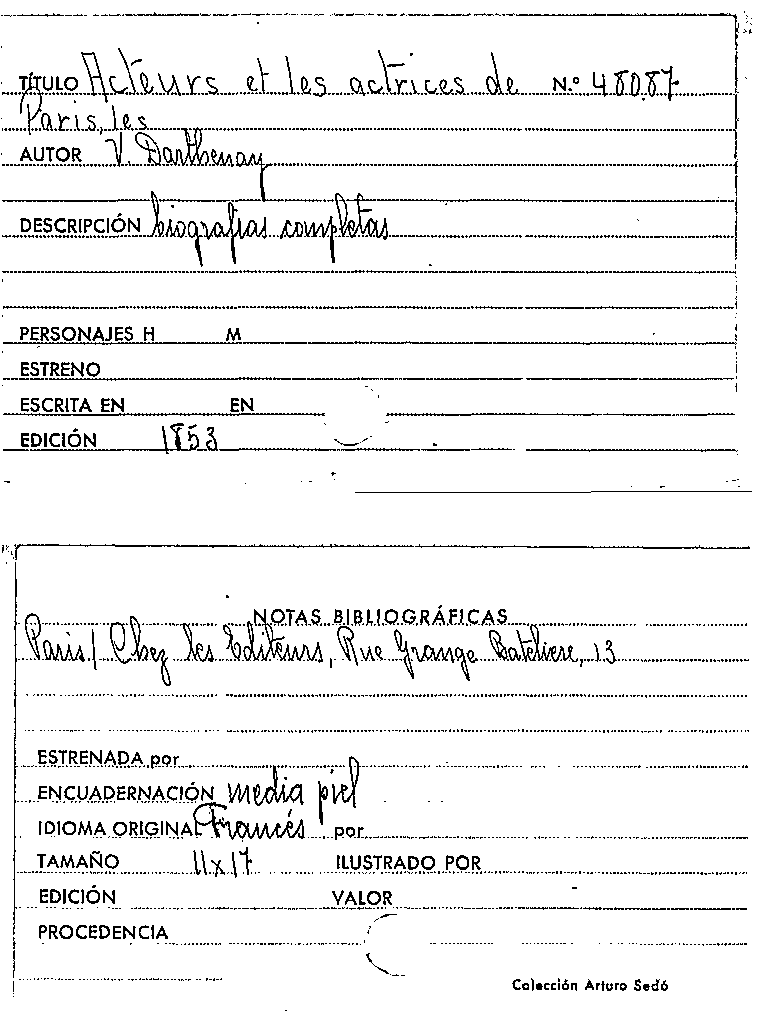 TÍTULO Acteurs et les actrices de N.º 48087
Paris, les
AUTOR V. Darthenay
DESCRIPCIÓN biografias completas
PERSONAJES H M
ESTRENO
ESCRITA EN EN
EDICIÓN 1853
NOTAS BIBLIOGRÁFICAS
Paris / Chez les Editeurs, Rue Grange Bateliere, 13
ESTRENADA por
ENCUADERNACIÓN media piel
IDIOMA ORIGINAL Francés por
TAMAÑO 11x17 ILUSTRADO POR
EDICIÓN VALOR
PROCEDENCIA
Colección Arturo Sedó